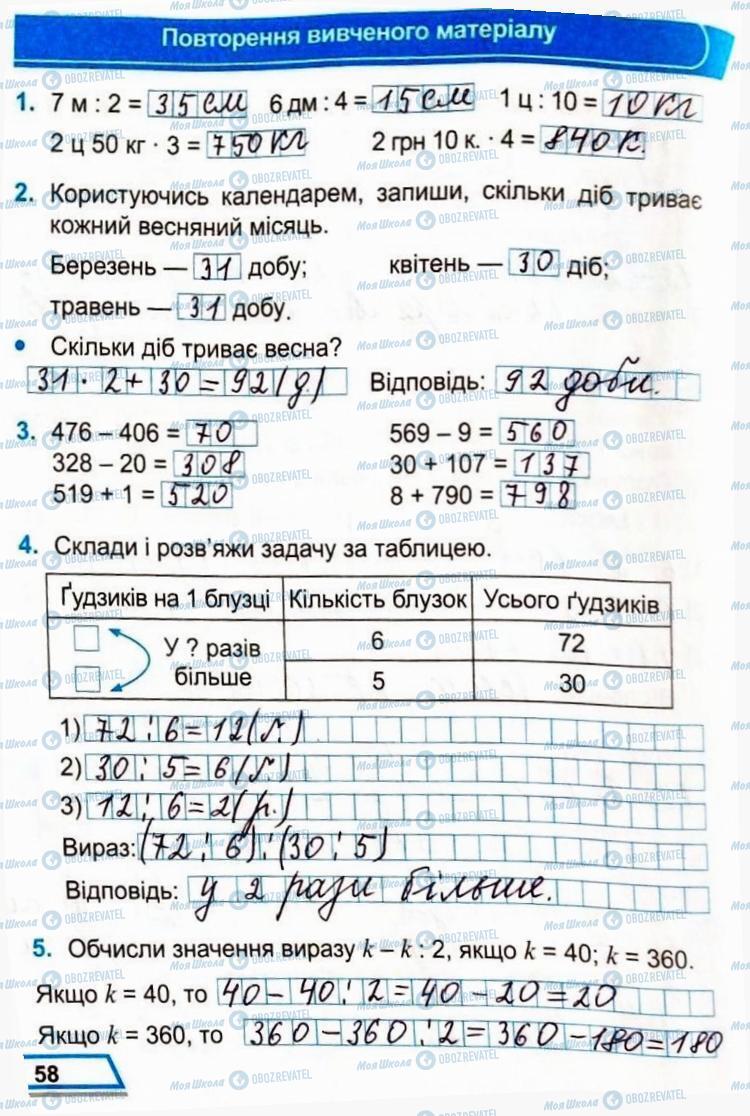 Повторення вивченого матеріалу
1. 7 м : 2 = 35 см 6 дм : 4 = 15 см 1 ц : 10 = 10 кг
2 ц 50 кг · 3 = 750 кг 2 грн 10 к. · 4 = 840 к.
2. Користуючись календарем, запиши, скільки діб триває
кожний весняний місяць.
Березень — 31 добу; квітень — 30 діб;
травень — 31 добу.
• Скільки діб триває весна?
31 · 2 + 30 = 92 (д) Відповідь: 92 доби.
3. 476 – 406 = 70 569 – 9 = 560
328 – 20 = 308 30 + 107 = 137
519 + 1 = 520 8 + 790 = 798
4. Склади і розв’яжи задачу за таблицею.
Ґудзиків на 1 блузці Кількість блузок Усього ґудзиків
У ? разів більше
6 72
5 30
1) 72 : 6 = 12 (г.)
2) 30 : 5 = 6 (г.)
3) 12 : 6 = 2 (р.)
Вираз: (72 : 6) : (30 : 5)
Відповідь: у 2 рази більше.
5. Обчисли значення виразу k – k : 2, якщо k = 40; k = 360.
Якщо k = 40, то 40 – 40 : 2 = 40 – 20 = 20
Якщо k = 360, то 360 – 360 : 2 = 360 – 180 = 180
58
Моя Школа OBOZREVATEL